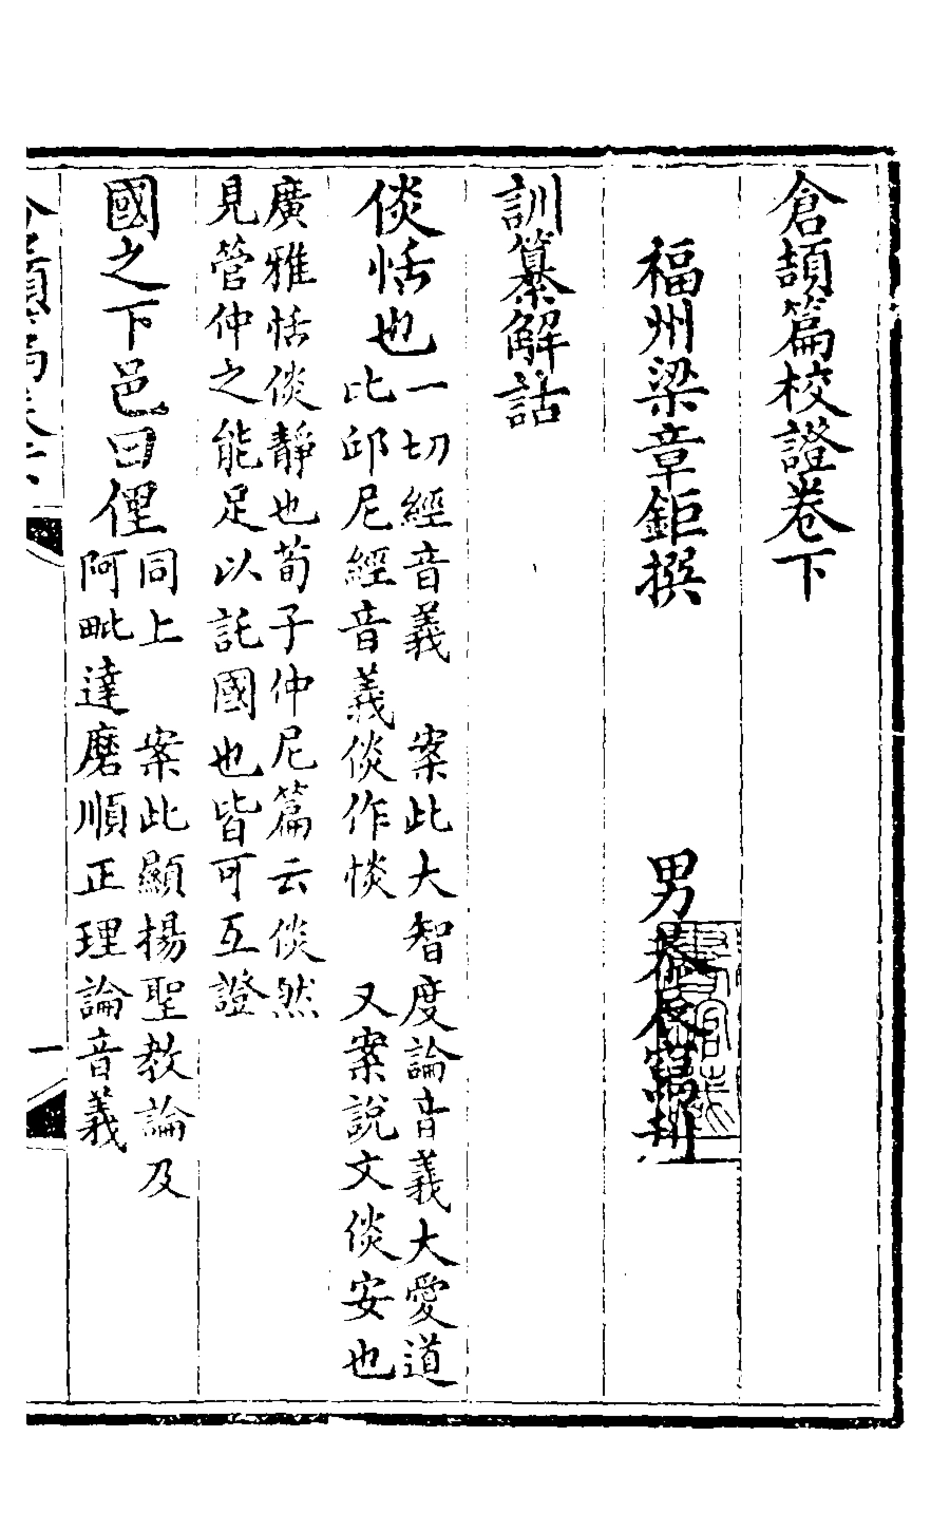 倉頡篇校證卷下
福州梁章鉅撰 男恭辰
訓纂解話
倓恬也一切經音義 案此大智度論音義大愛道
比邱尼經音義倓作惔 又案說文倓安也
廣雅恬倓靜也荀子仲尼篇云倓然
見管仲之能足以託國也皆可互證
國之下邑曰俚同上 案此顯揚聖教論及
阿毗達磨順正理論音義
一